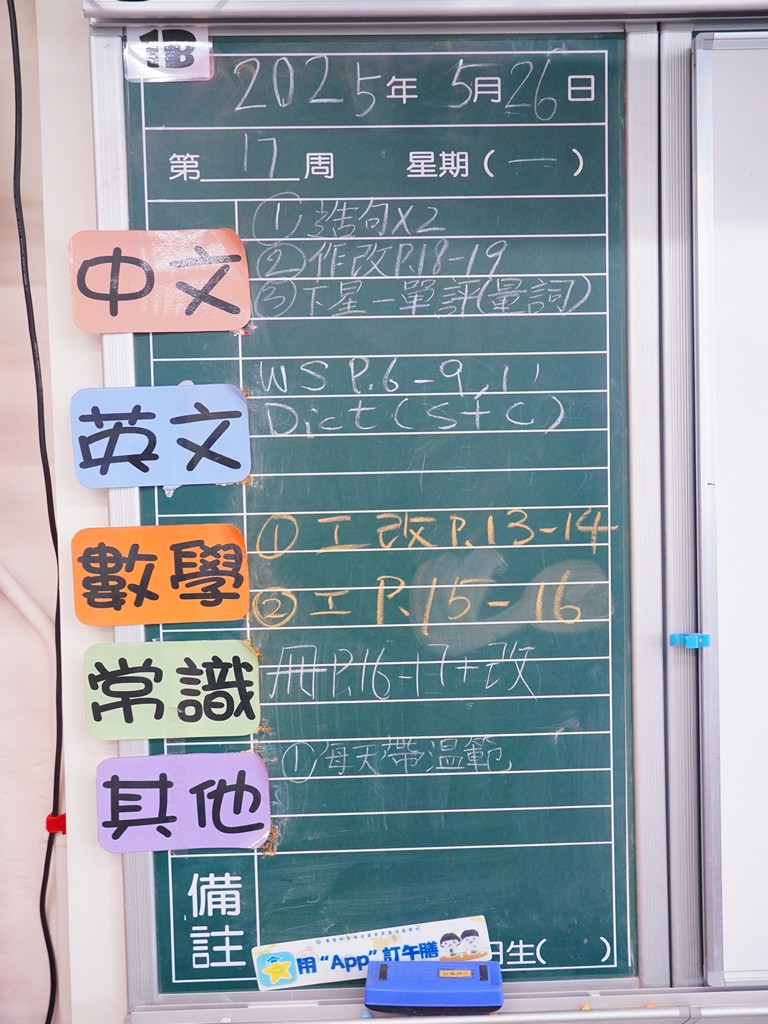 1B
2025年 5月26日
第 17 周 星期(一)
中文
① 造句X2
② 作改P.18-19
③ 下星一單評(量詞)
英文
WS P.6-9, 11
Dict (S+C)
數學
① 工改P.13-14
② 工 P.15-16
常識
冊P.16-17+改
其他
① 每天帶温範
備註
用 “App” 訂午膳
生( )